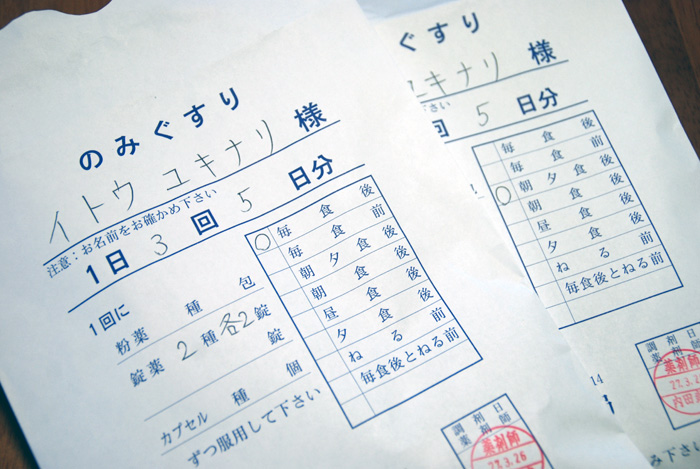 のみぐすり
イトウ ユキナリ 様
注意：お名前をお確かめ下さい
1日 3 回 5 日分
○ 毎食後
毎食前
朝夕食後
朝食後
昼食後
夕食後
ねる前
毎食後とねる前
1回に
粉薬 種 包
錠薬 2 種 各2 錠
カプセル 種 個
ずつ服用して下さい
調剤日
薬剤師
薬剤師
27.3.26
ぐすり
ユキナリ 様
下さい
回 5 日分
毎食後
毎食前
○ 朝夕食後
朝食後
昼食後
夕食後
ねる前
毎食後とねる前
14
調剤日
薬剤師
薬剤師
27.3.2
内田
み下さい